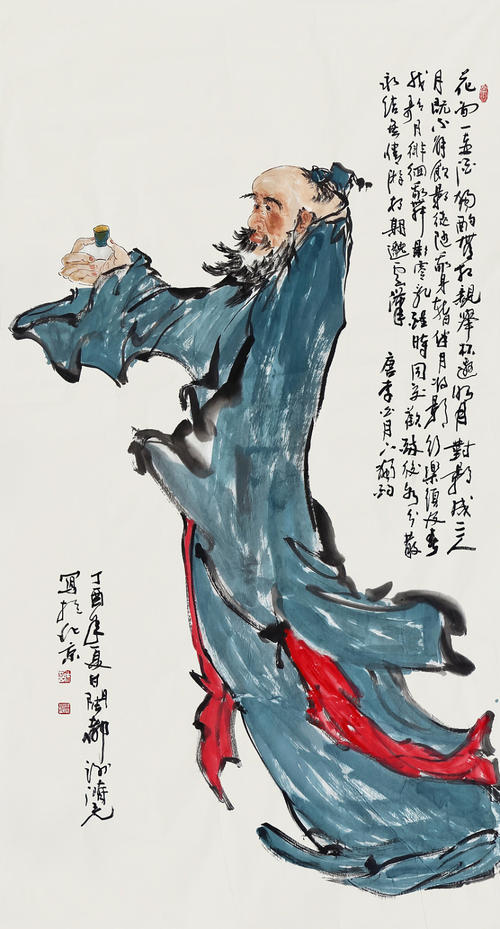 花间一壶酒独酌無相親舉杯邀明月對影成三人
月既不解飲影徒随我身暂伴月将影行樂須及春
我歌月徘徊我舞影零乱醒時同交歡醉後各分散
永結無情游相期邈雲漢
唐李白月下獨酌
丁酉年夏日閩都
寫於北京